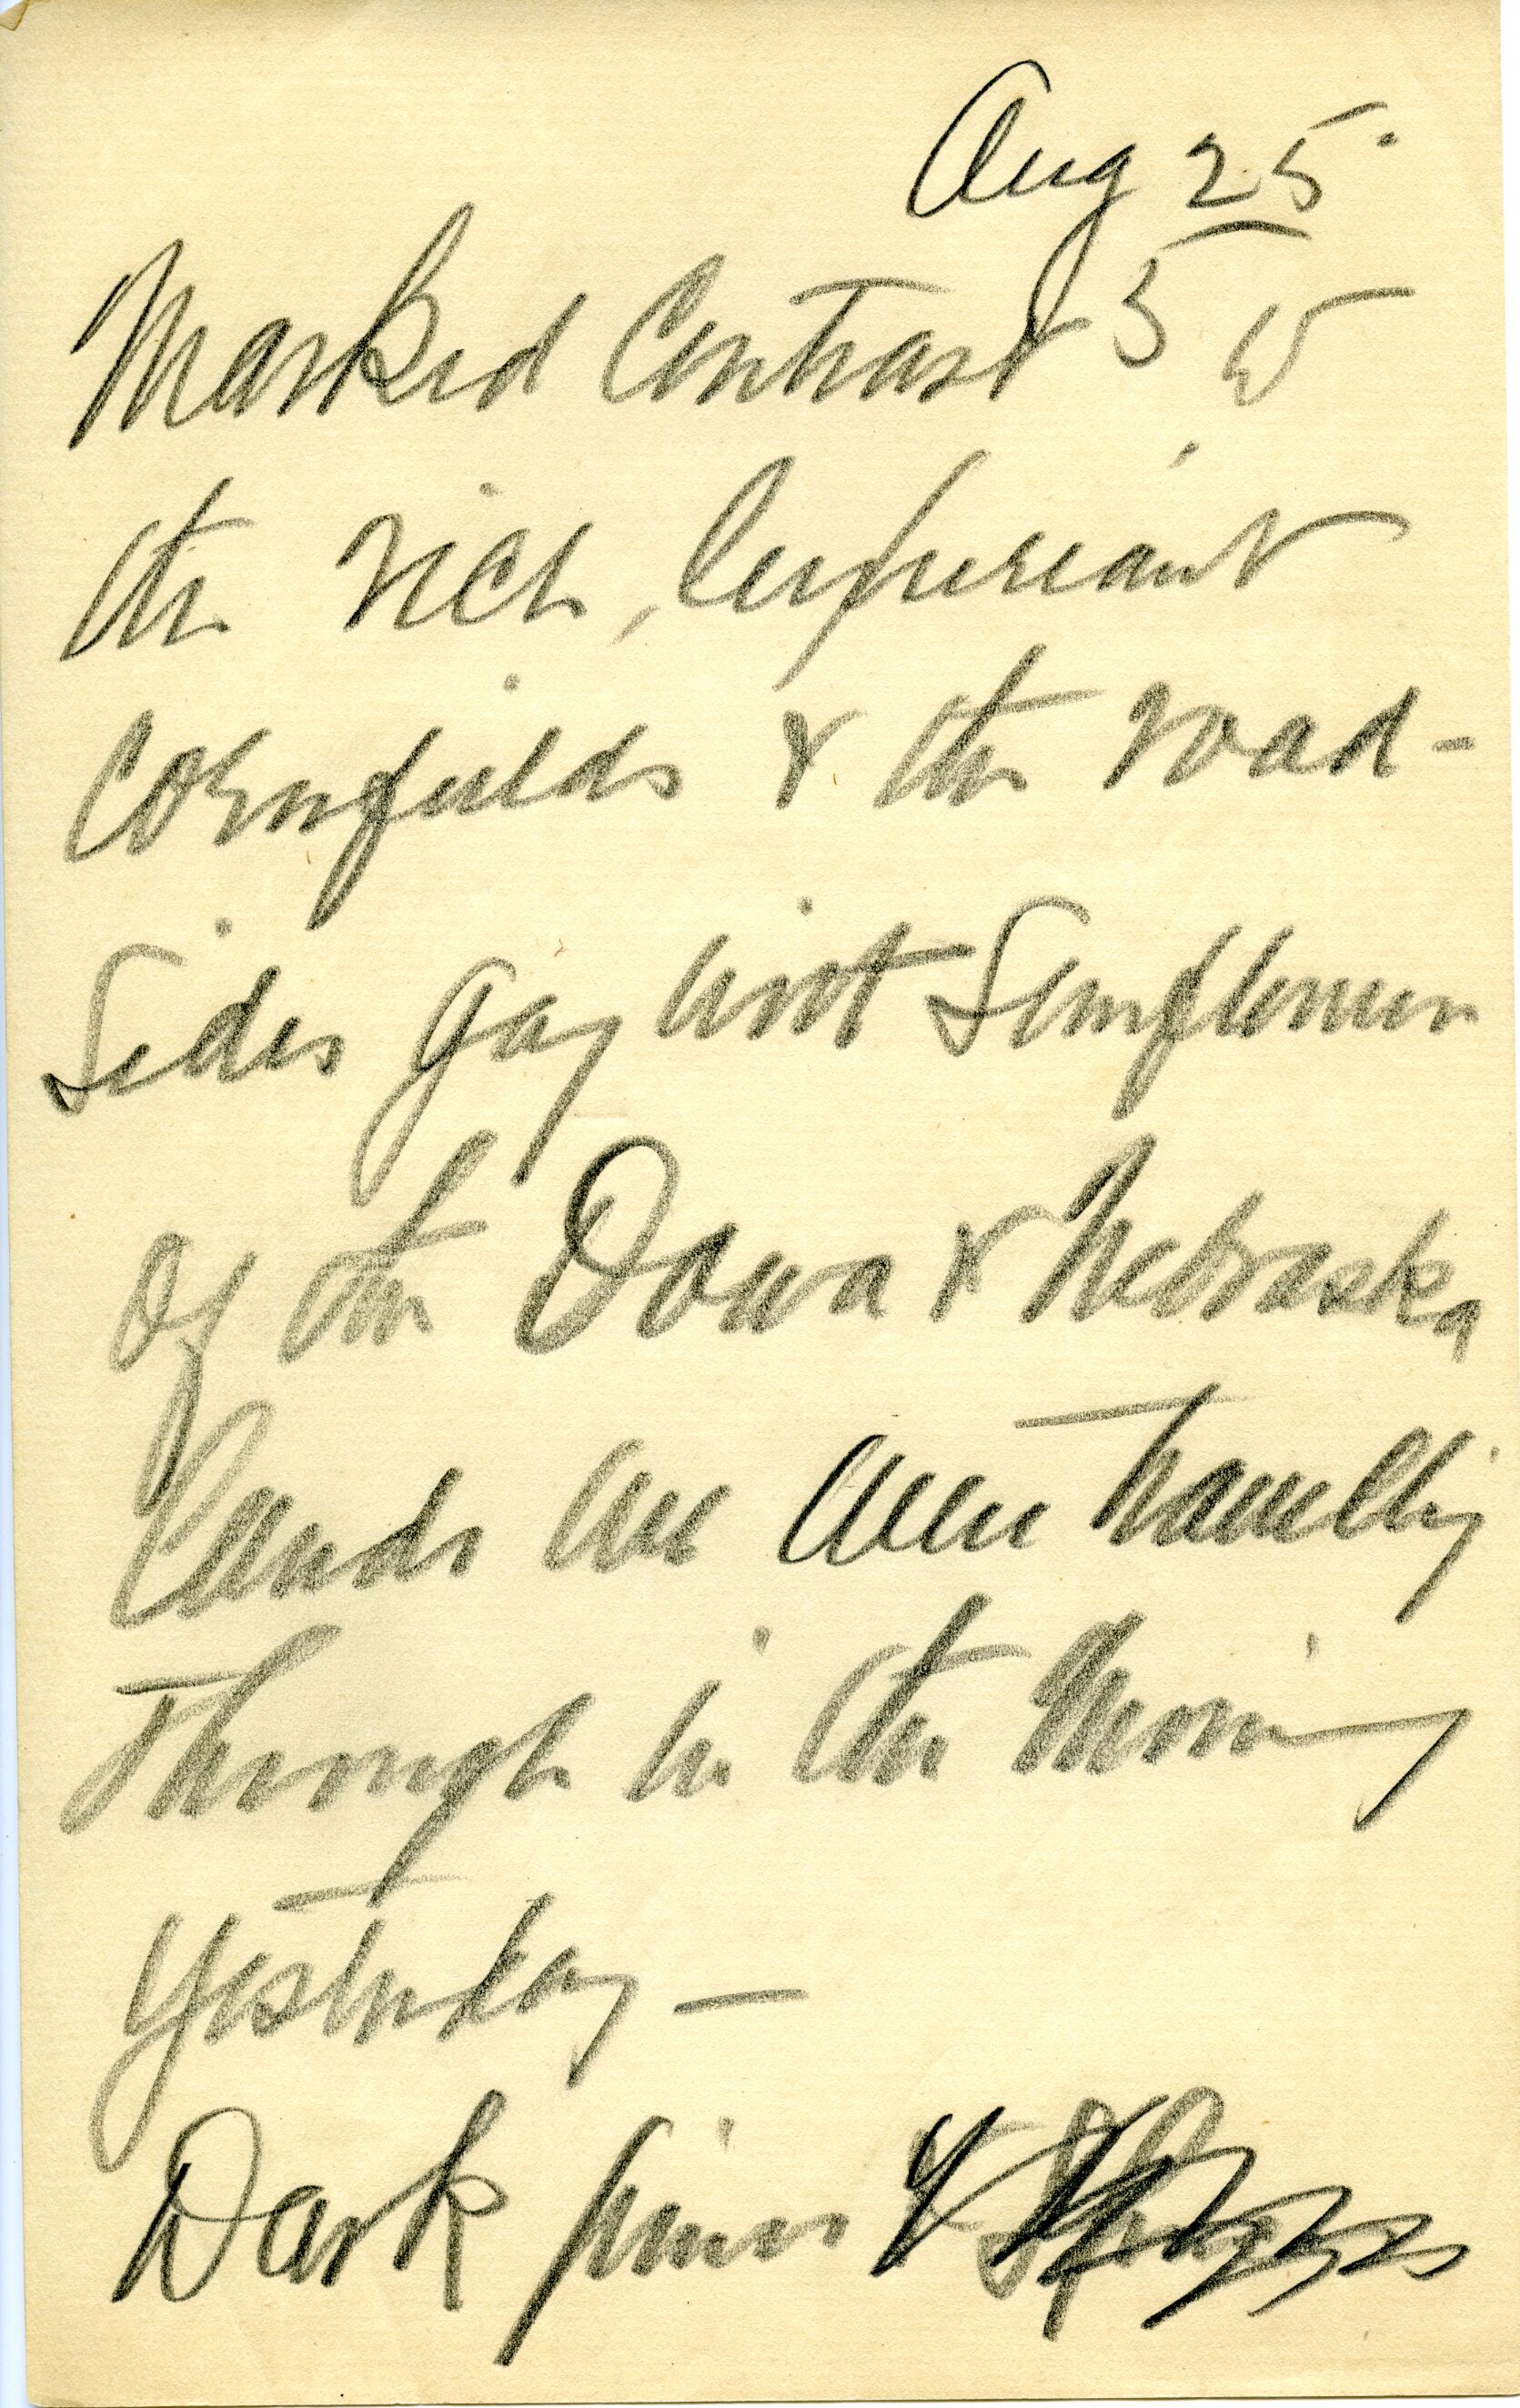 Aug 25.
Marked Contrast to
the rich, luxuriant
Cornfields & the road-
Sides gay with Sunflowers
of the Iowa & Nebraska
lands we were travelling
through in the morning
yesterday —
Dark pines &